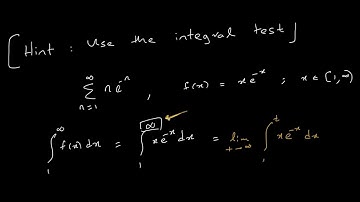 [Hint : Use the integral test]
∞ ∑ n=1 n e^{-n} , f(x) = x e^{-x} ; x ∈ [1, ∞)
∫_1^∞ f(x) dx = ∫_1^∞ x e^{-x} dx = lim_{t→∞} ∫_1^t x e^{-x} dx